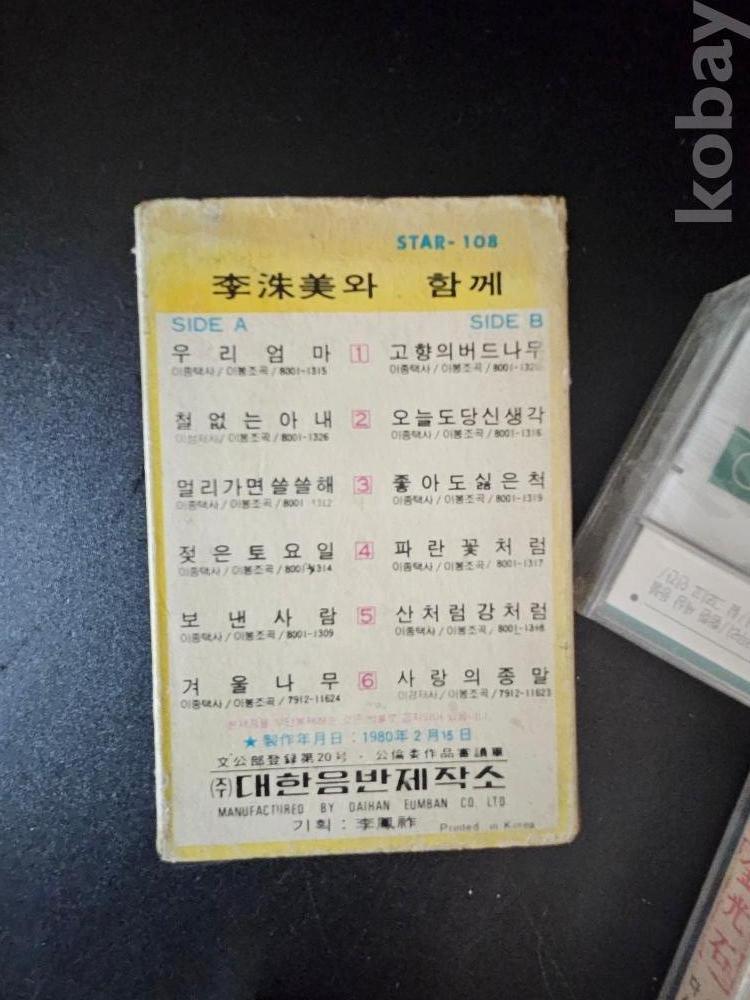 kobay
STAR-108
李洙美와 함께
SIDE A
SIDE B
우리엄마 1 고향의버드나무
이종택사/이봉조곡/8001-1315 이종택사/이봉조곡/8001-132
철없는아내 2 오늘도당신생각
이봉조곡/8001-1326 이종택사/이봉조곡/8001-1316
멀리가면쓸쓸해 3 좋아도싫은척
이종택사/이봉조곡/8001 1312 이종택사/이봉조곡/8001-1319
젖은토요일 4 파란꽃처럼
이종택사/이봉조곡/8001 1314 이종택사/이봉조곡/8001-1317
보낸사람 5 산처럼강처럼
이종택사/이봉조곡/8001-1309 이종택사/이봉조곡/8001-13
겨울나무 6 사랑의종말
이종택사/이봉조곡/7912-11624 이봉조곡/7912-11623
★製作年月日:1980年2月15日
文公部登録第20号·公倫委作品審議畢
(주)대한음반제작소
MANUFACTURED BY DAIHAN EUMBAN CO. LTD
기획:李鳳祚 Printed in Korea
金光石